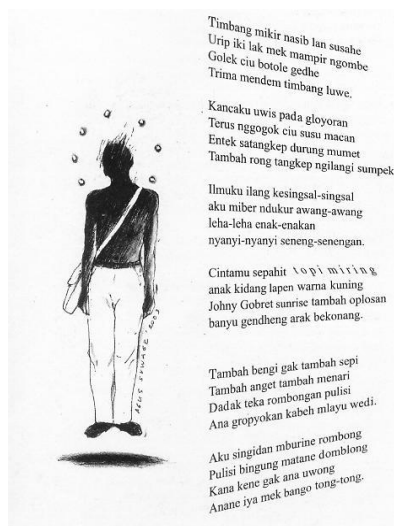 Timbang mikir nasib lan susahe
Urip iki lak mek mampir ngombe
Golek ciu botole gedhe
Trima mendem timbang luwe.
Kancaku uwis pada gloyoran
Terus nggogok ciu susu macan
Entek satangkep durung mumet
Tambah rong tangkep ngilangi sumpek
Ilmuku ilang kesingsal-singsal
aku miber ndukur awang-awang
leha-leha enak-enakan
nyanyi-nyanyi seneng-senengan.
Cintamu sepahit topi miring
anak kidang lapen warna kuning
Johny Gobret sunrise tambah oplosan
banyu gendheng arak bekonang.
Tambah bengi gak tambah sepi
Tambah anget tambah menari
Dadak teka rombongan pulisi
Ana gropyokan kabeh mlayu wedi.
Aku singidan mburine rombong
Pulisi bingung matane domblong
Kana kene gak ana uwong
Anane iya mek bango tong-tong.